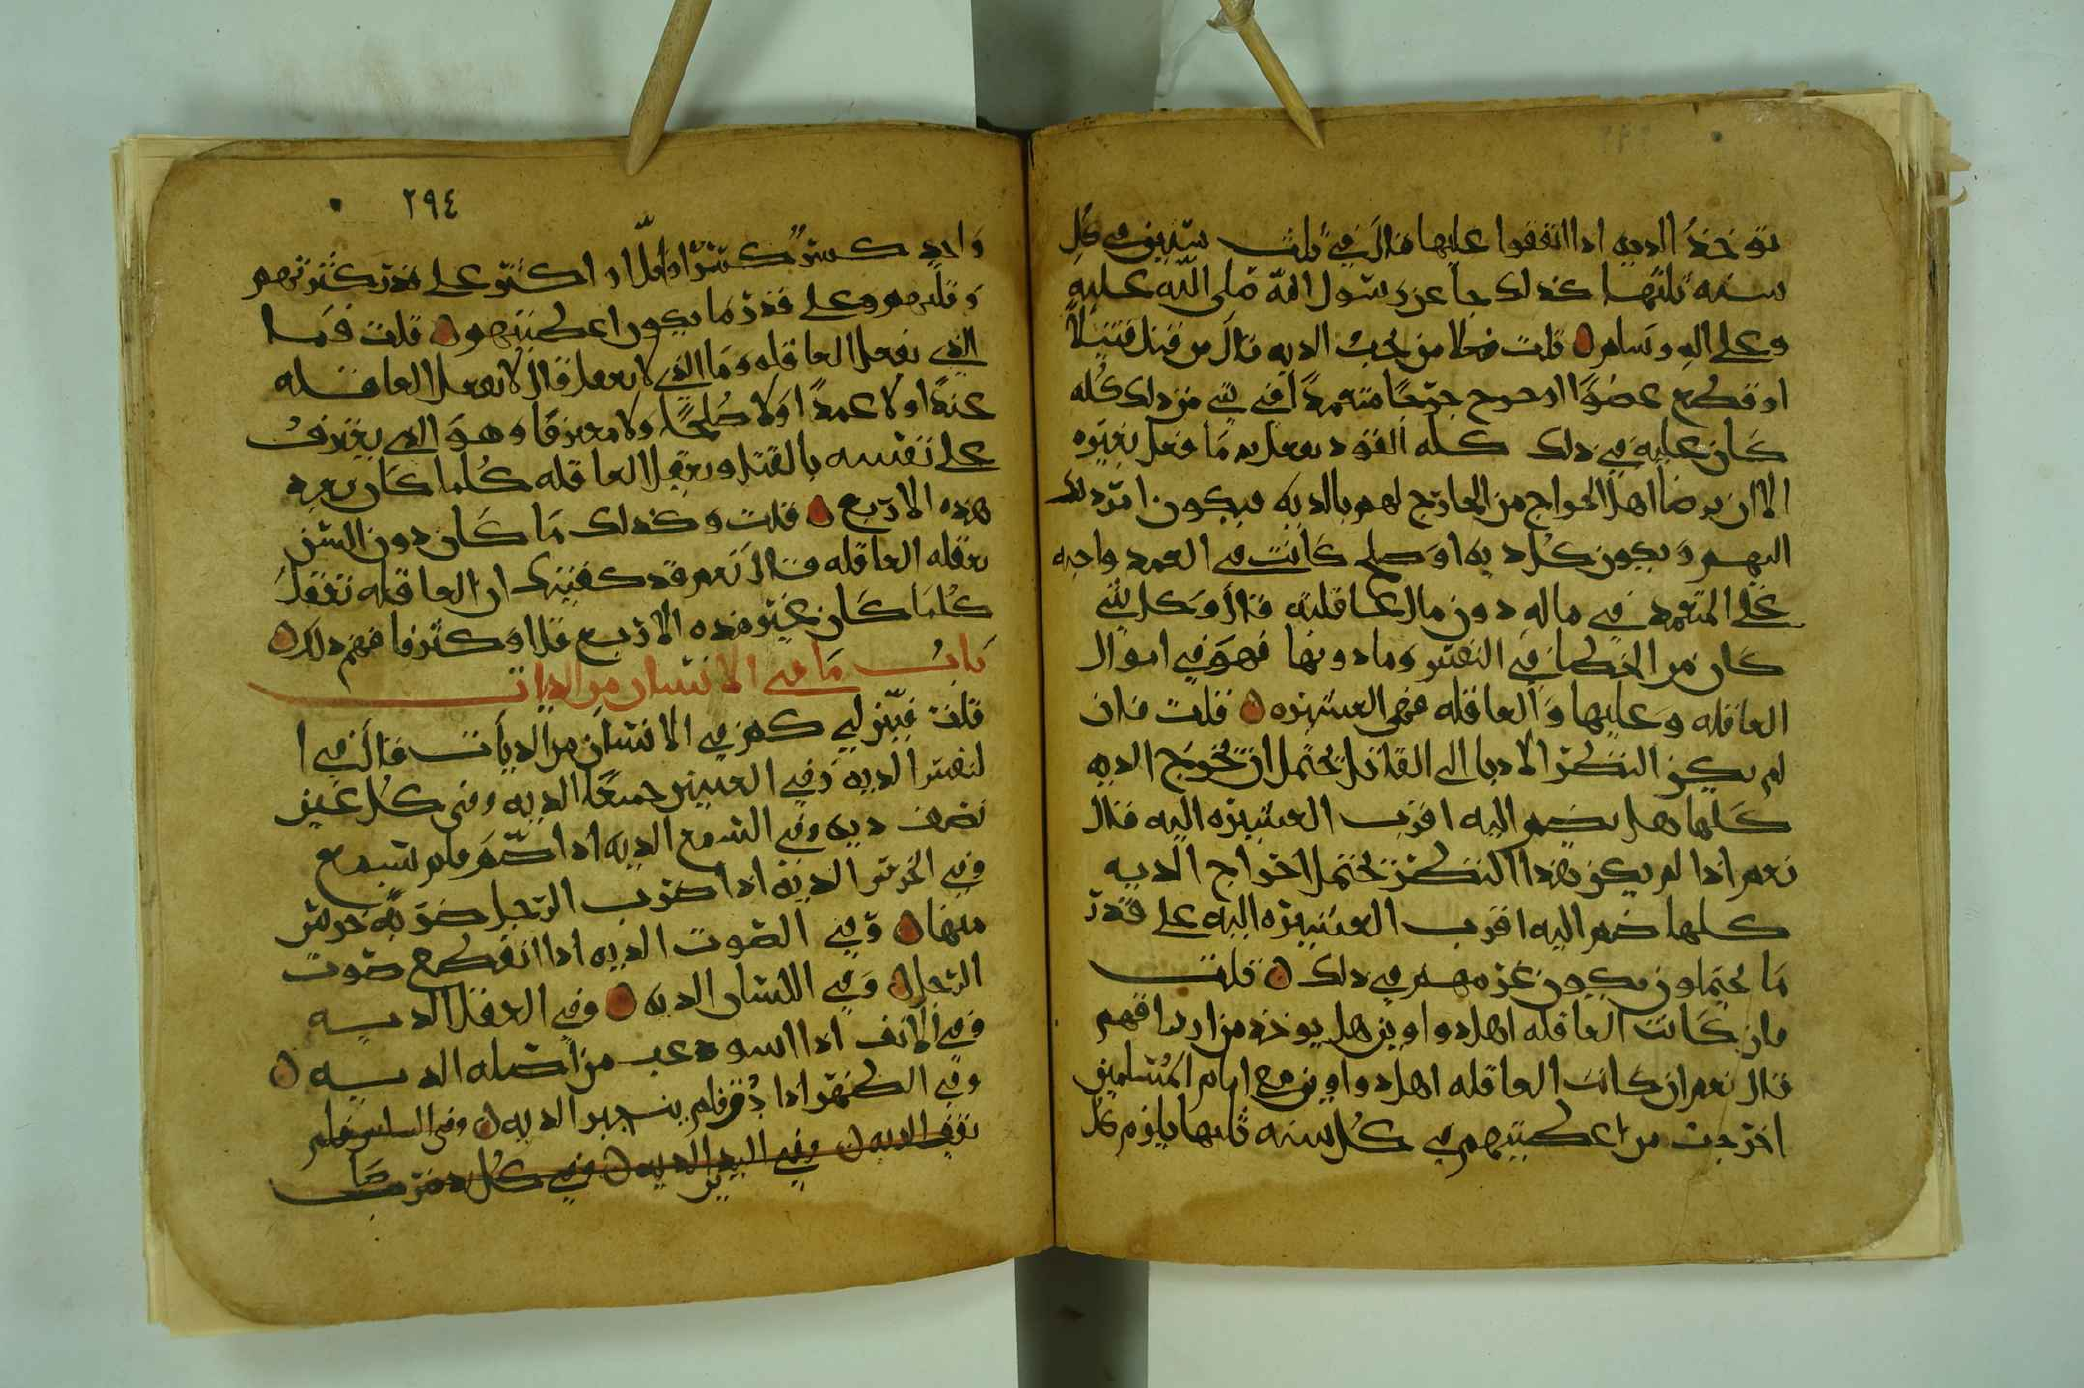 توخذ الديه اذا اتفقوا عليها قال في ثلث سنين في كل
سنه ثلثها كذلك جا عن رسول الله صلى الله عليه
وعلى اله وسلم قلت فعلا من تجب الديه قال من قتل قتيلا
او قطع عضوا او جرح جرحا متعمدا في شي من ذلك كله
كان عليه في ذلك كله القود يفعل به ما فعل بغيره
الا ان يرضا اهل الجوارح من الجارح لهم بالديه فيكون امر ذلك
اليهم ويكون كل ديه او صلح كانت في العمد واجبه
على المتعمد في ماله دون مال عاقلته قال وكل شي
كان من الخطا في النفس وما دونها فهو في اموال
العاقله وعليها والعاقله فهي العشيره قلت فان
لم يكن البطن الادنا الى القاتل يحتمل ان تخرج الديه
كلها هل يضم اليه اقرب العشيره اليه قال
نعم اذا لم يكن هذا البطن يحتمل اخراج الديه
كلها ضم اليه اقرب العشيره اليه على قدر
ما يحتملون يكون غرمهم في ذلك قلت
فان كانت العاقله اهل دواوين هل يوخذ من ارزاقهم
قال نعم ان كانت العاقله اهل دواوين مع امام المسلمين
اخرجت من اعطيتهم في كل سنه ثلثها يلزم كل
٢٩٤
واحد كسر كسرا اقل او اكثر على قدر كثرتهم
وقلتهم وعلى قدر ما يكون اعطيتهم قلت فما
الذي تعقل العاقله وما الذي لا تعقل قال لا تعقل العاقله
عبدا ولا عمدا ولا صلحا ولا معترفا وهو الذي يعترف
على نفسه بالقتل وتعقل العاقله كلما كان بعد
هذه الاربع قلت وكذلك ما كان دون السن
تعقله العاقله قال نعم قد كفيتك ان العاقله تعقل
كلما كان غير هذه الاربع قل او كثر فافهم ذلك
باب ما في الانسان من الديات
قلت فبين لي كم في الانسان من الديات قال في ا
لنفس الديه وفي العينين جميعا الديه وفي كل عين
نصف ديه وفي السمع الديه اذا اصم فلم يسمع
وفي الخرس الديه اذا ضرب الرجل ضربه خرس
منها وفي الصوت الديه اذا انقطع صوت
الرجل وفي اللسان الديه وفي العقل الديه
وفي الانف اذا استوعب من اصله الديه
وفي الظهر اذا دق فلم ينجبر الديه وفي السلس فلم
الديه وفي اليدين الديه وفي كل